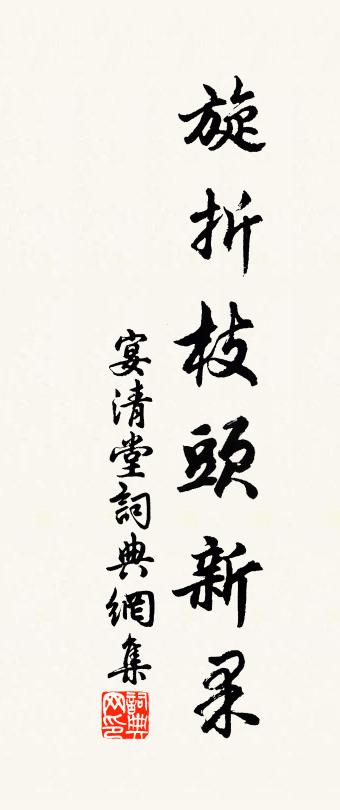 旋折枝頭新果
宴清堂詞典網集
詞典网印